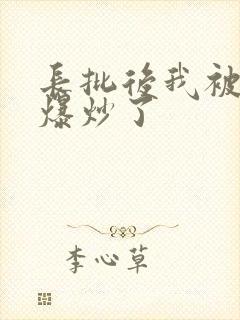 長批後我被
爆炒了
李心草